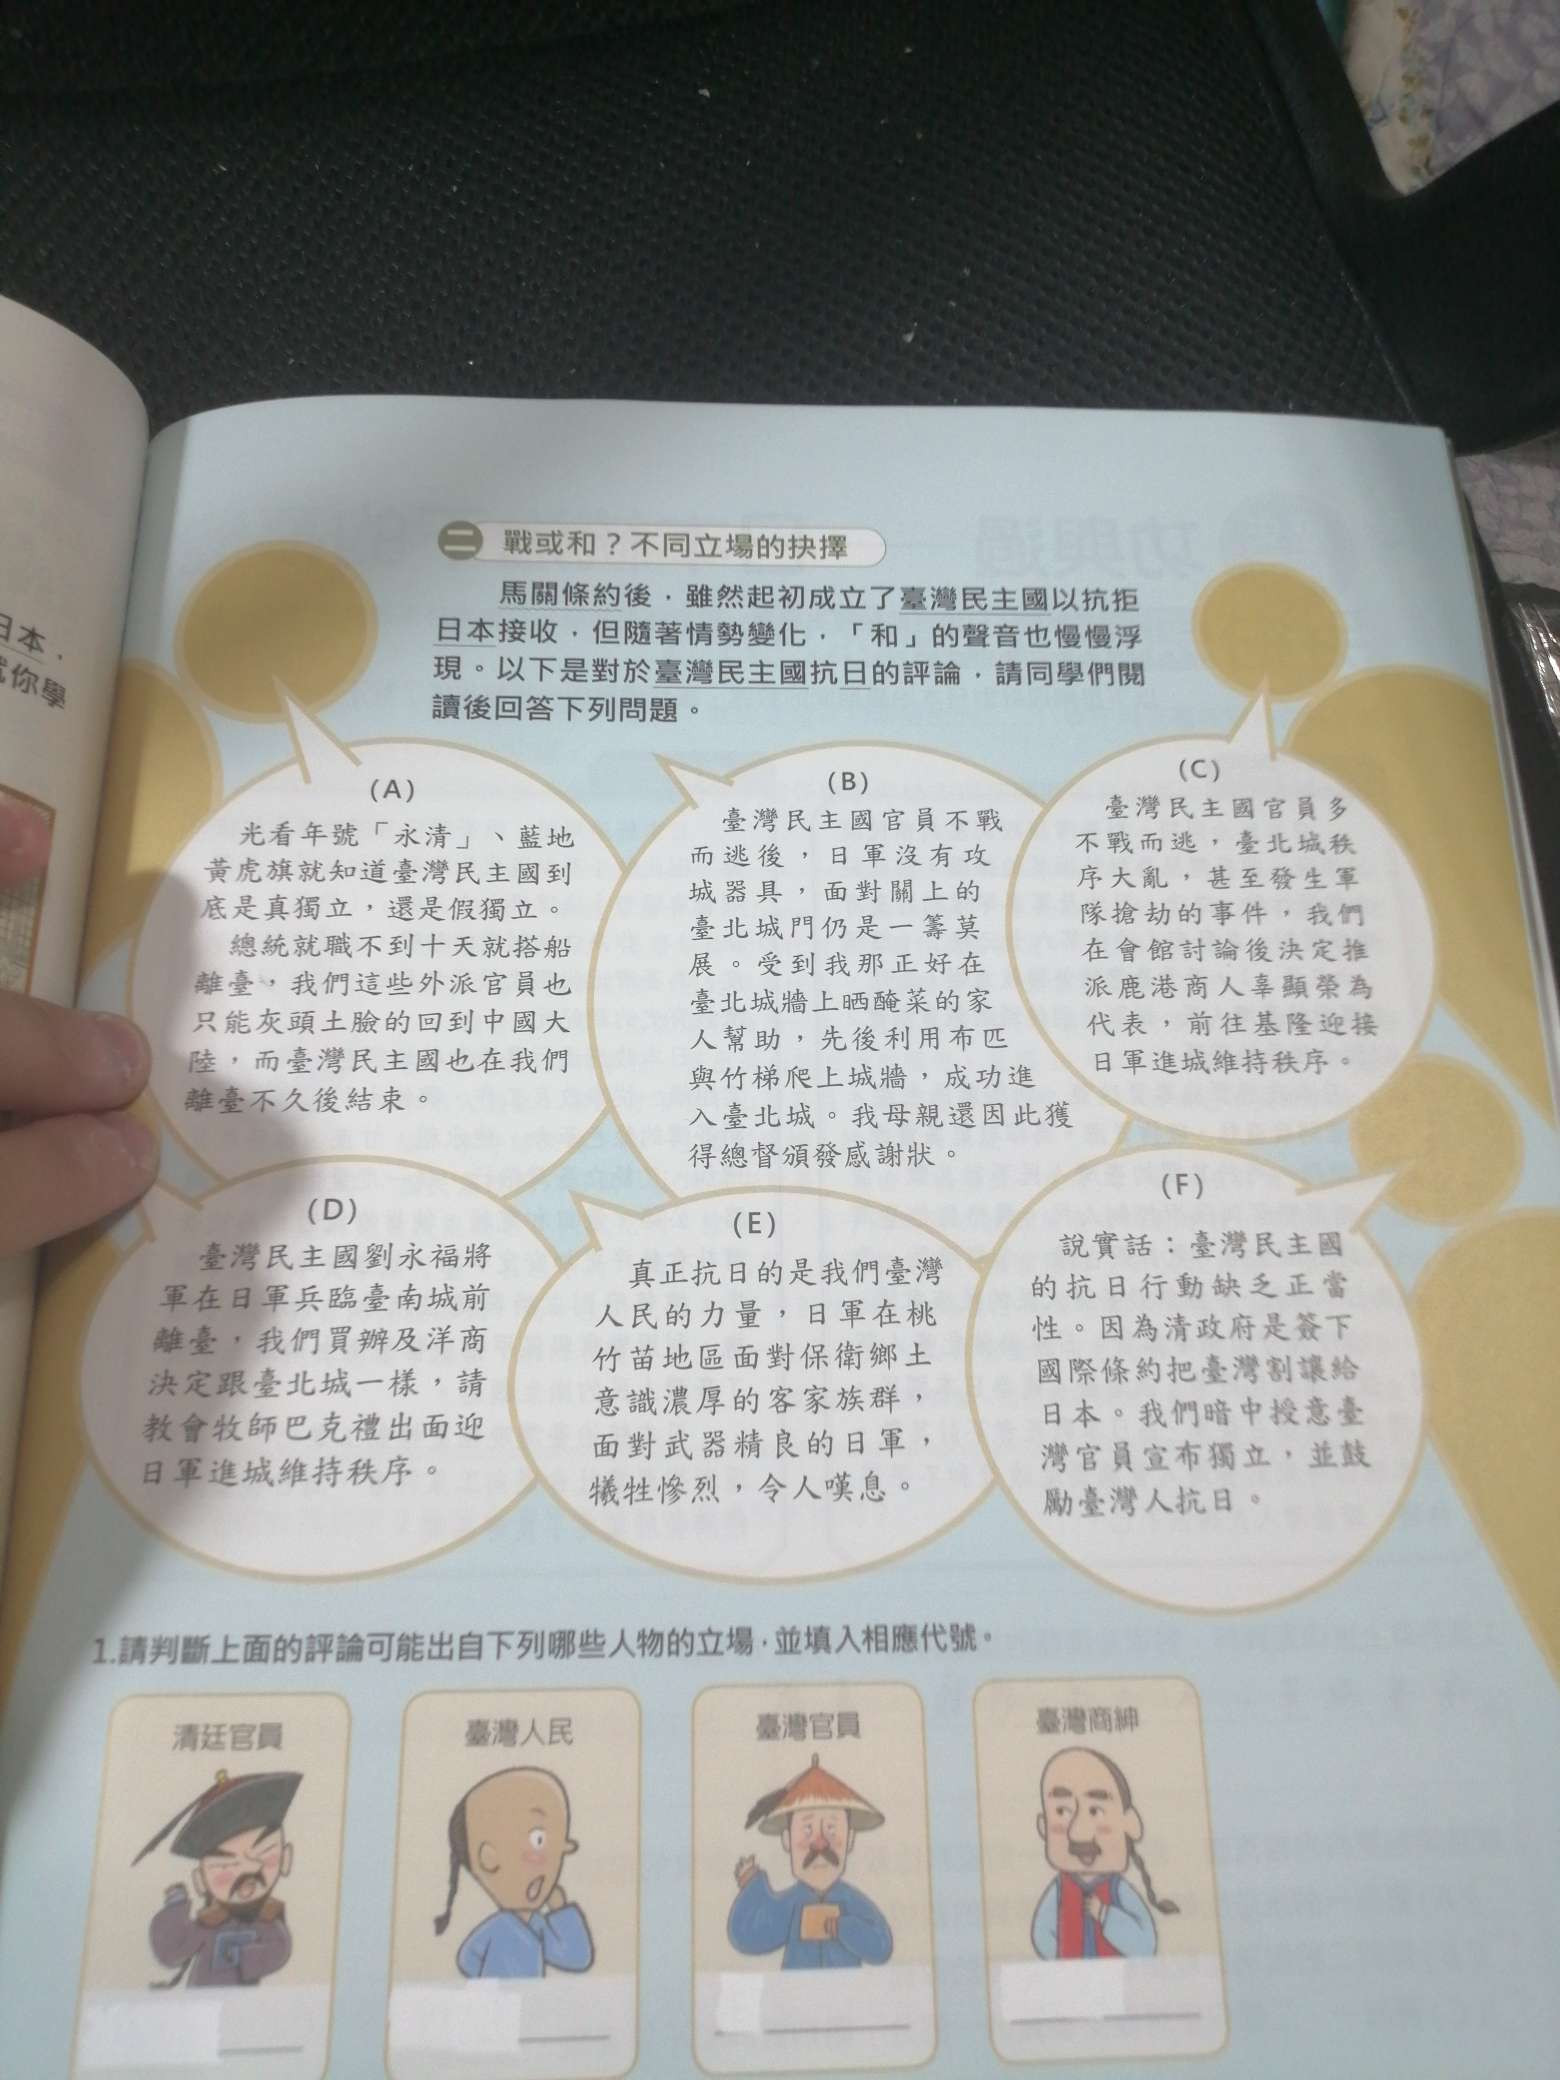 日本，
就你學
二 戰或和？不同立場的抉擇
馬關條約後，雖然起初成立了臺灣民主國以抗拒
日本接收，但隨著情勢變化，「和」的聲音也慢慢浮
現。以下是對於臺灣民主國抗日的評論，請同學們閱
讀後回答下列問題。
(A)
光看年號「永清」、藍地
黃虎旗就知道臺灣民主國到
底是真獨立，還是假獨立。
總統就職不到十天就搭船
離臺，我們這些外派官員也
只能灰頭土臉的回到中國大
陸，而臺灣民主國也在我們
離臺不久後結束。
(B)
臺灣民主國官員不戰
而逃後，日軍沒有攻
城器具，面對關上的
臺北城門仍是一籌莫
展。受到我那正好在
臺北城牆上晒醃菜的家
人幫助，先後利用布匹
與竹梯爬上城牆，成功進
入臺北城。我母親還因此獲
得總督頒發感謝狀。
(C)
臺灣民主國官員多
不戰而逃，臺北城秩
序大亂，甚至發生軍
隊搶劫的事件，我們
在會館討論後決定推
派鹿港商人辜顯榮為
代表，前往基隆迎接
日軍進城維持秩序。
(D)
臺灣民主國劉永福將
軍在日軍兵臨臺南城前
離臺，我們買辦及洋商
決定跟臺北城一樣，請
教會牧師巴克禮出面迎
日軍進城維持秩序。
(E)
真正抗日的是我們臺灣
人民的力量，日軍在桃
竹苗地區面對保衛鄉土
意識濃厚的客家族群，
面對武器精良的日軍，
犧牲慘烈，令人嘆息。
(F)
說實話：臺灣民主國
的抗日行動缺乏正當
性。因為清政府是簽下
國際條約把臺灣割讓給
日本。我們暗中授意臺
灣官員宣布獨立，並鼓
勵臺灣人抗日。
1.請判斷上面的評論可能出自下列哪些人物的立場，並填入相應代號。
清廷官員
臺灣人民
臺灣官員
臺灣商紳